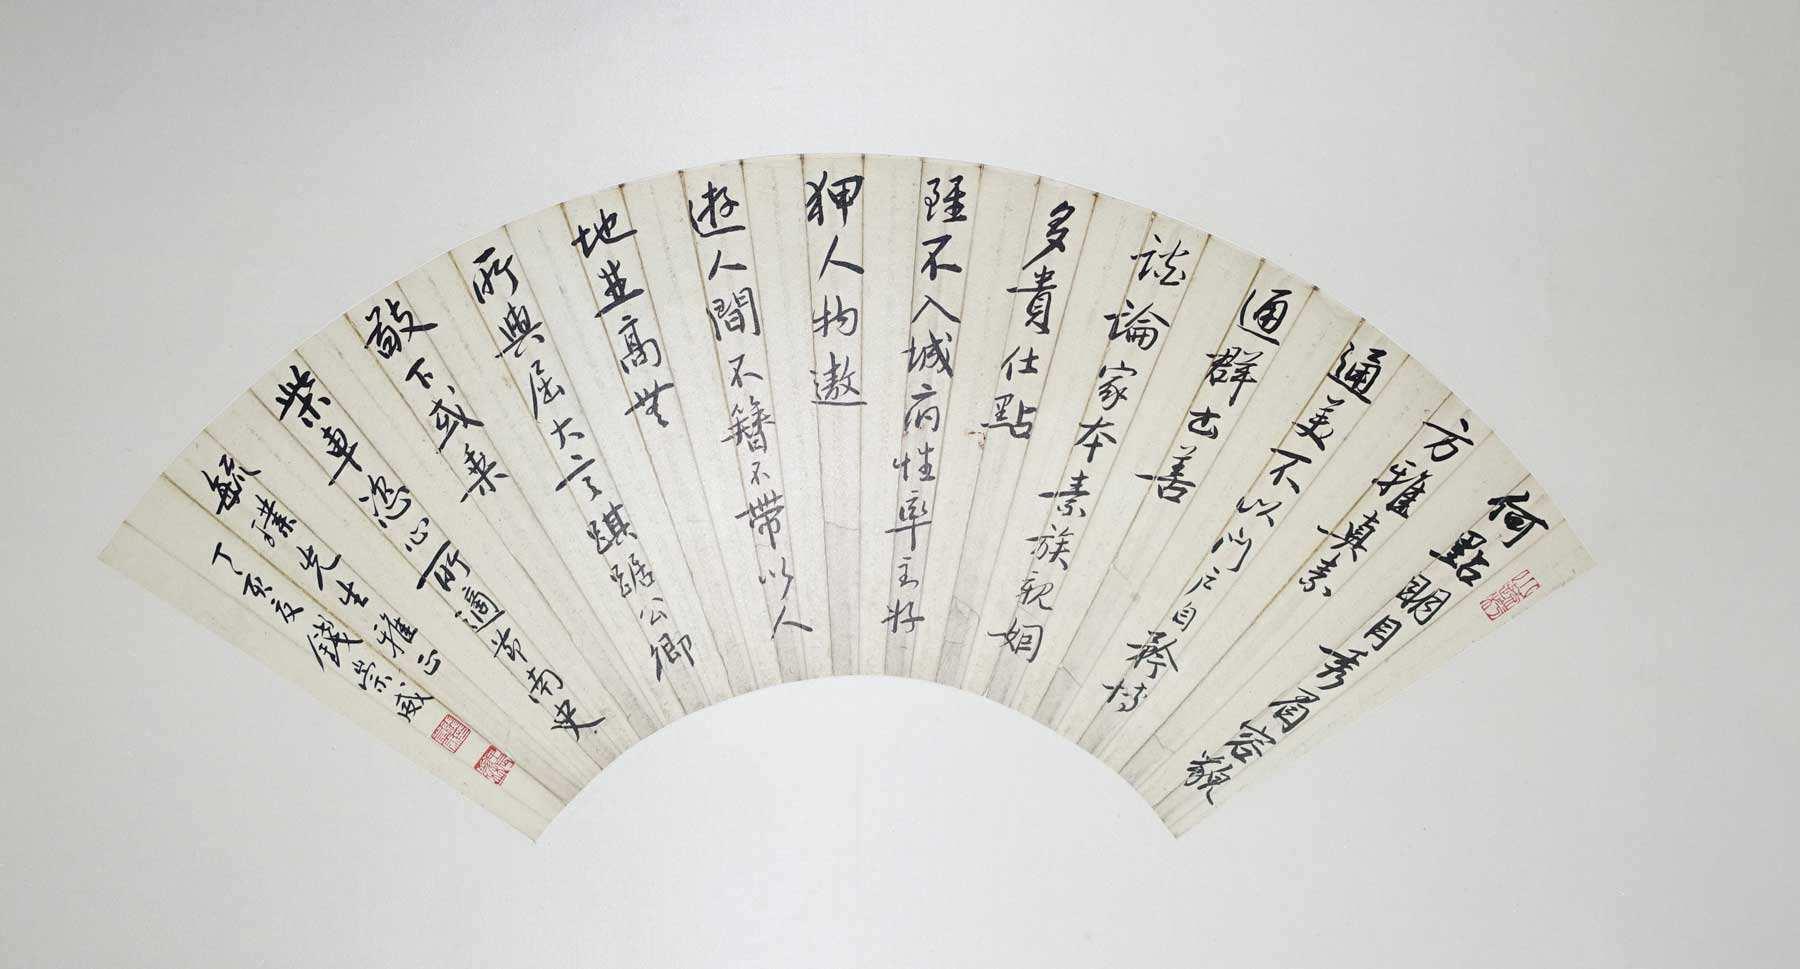 何點明目秀眉容貌
方雅真素
通美不以門戶自矜博
通群書善
談論家本素族親姻
多貴仕點
雖不入城府性率主好
狎人物遨
遊人間不簪不帶以人
地並高無
所與屈大言踑踞公卿
敬下或乘
柴車恣心所適節南史
毓璞先生雅正
丁亥夏錢崇威